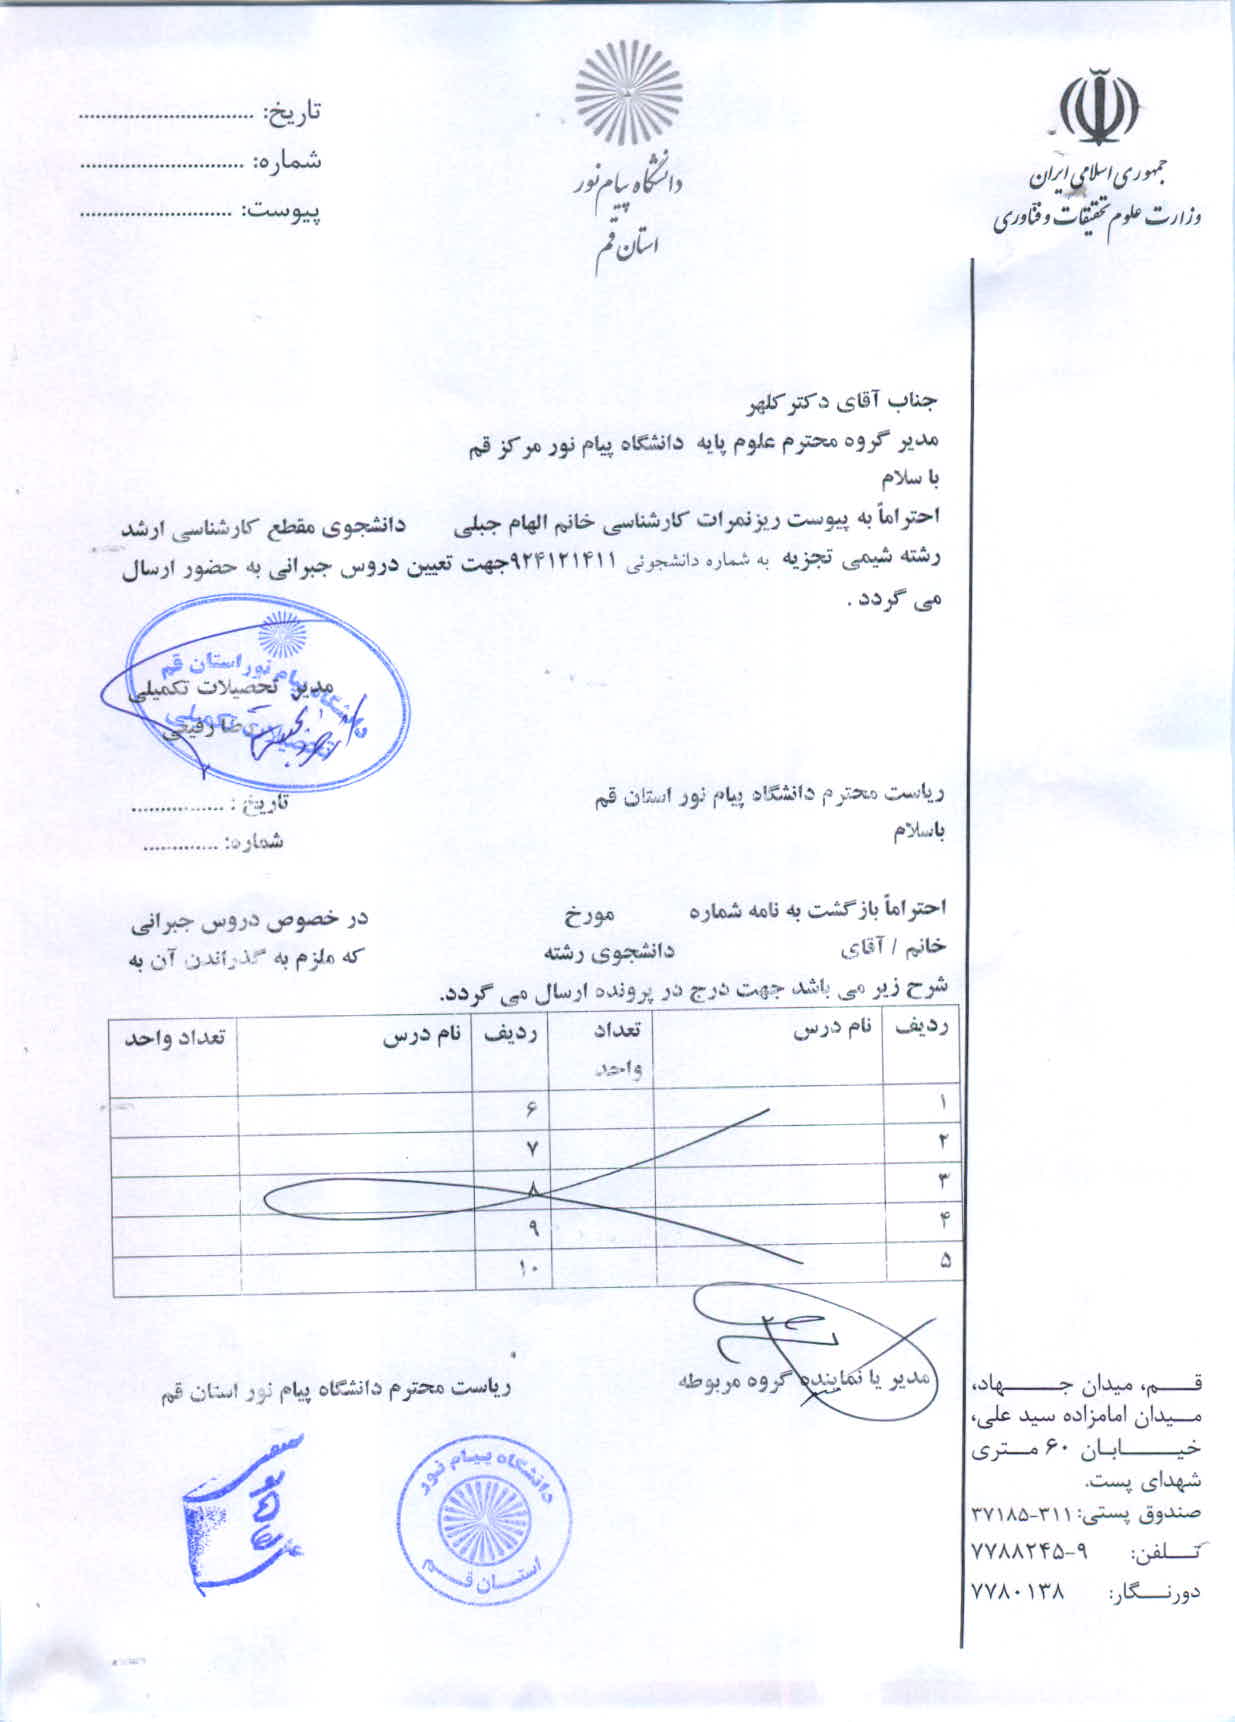 جمهوری اسلامی ایران
وزارت علوم تحقیقات و فناوری
دانشگاه پیام نور
استان قم
تاریخ: ................................
شماره: ..............................
پیوست: ............................
جناب آقای دکتر کلهر
مدیر گروه محترم علوم پایه دانشگاه پیام نور مرکز قم
با سلام
احتراماً به پیوست ریزنمرات کارشناسی خانم الهام جبلی دانشجوی مقطع کارشناسی ارشد
رشته شیمی تجزیه به شماره دانشجوئی ۹۲۴۱۲۱۴۱۱جهت تعیین دروس جبرانی به حضور ارسال
می گردد .
دانشگاه پیام نور استان قم
تحصیلات تکمیلی
مدیر تحصیلات تکمیلی
رفیعی
ریاست محترم دانشگاه پیام نور استان قم
تاریخ : ...............
باسلام
شماره: .............
احتراماً بازگشت به نامه شماره مورخ در خصوص دروس جبرانی
خانم / آقای دانشجوی رشته که ملزم به گذراندن آن به
شرح زیر می باشد جهت درج در پرونده ارسال می گردد.
ردیف نام درس تعداد واحد ردیف نام درس تعداد واحد
۱ ۶
۲ ۷
۳ ۸
۴ ۹
۵ ۱۰
مدیر یا نماینده گروه مربوطه
ریاست محترم دانشگاه پیام نور استان قم
دانشگاه پیام نور
استان قم
قم، میدان جهاد،
میدان امامزاده سید علی،
خیابان ۶۰ متری
شهدای پست.
صندوق پستی: ۳۷۱۸۵-۳۱۱
تلفن: ۷۷۸۸۲۴۵-۹
دورنگار: ۷۷۸۰۱۳۸